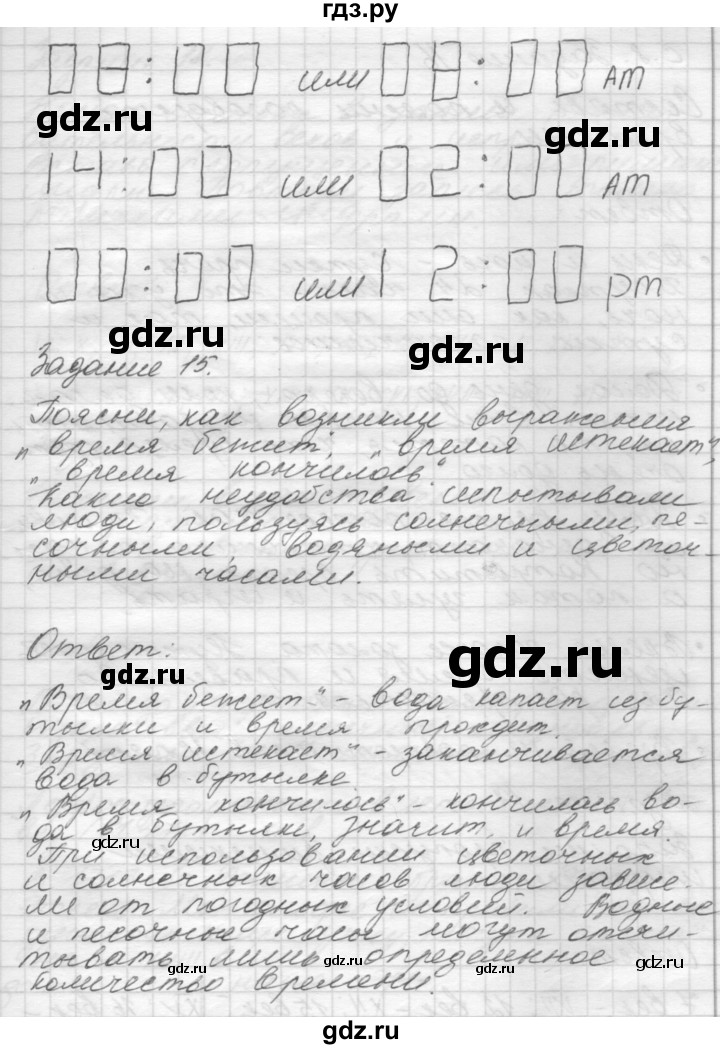 гдз.ру
08:00 или 08:00 AM
gdz.ru
gdz.ru
14:00 или 02:00 AM
00:00 или 12:00 pm
gdz.ru
gdz.ru
Задание 15.
Поясни, как возникли выражения
„время бежит", „время истекает",
„время кончилось".
Какие неудобства испытывали
люди, пользуясь солнечными, пе-
сочными, водяными и цветоч-
ными часами.
Ответ:
gdz.ru
gdz.ru
„Время бежит" - вода капает из бу-
тылки и время проходит.
„Время истекает" - заканчивается
вода в бутылке
„Время кончилось" - кончилась во-
да в бутылке, значит, и время.
gdz.ru
При использовании цветочных
и солнечных часов люди зависе-
ли от погодных условий. Водные
и песочные часы могут отсчи-
тывать лишь определенное
gdz.ru
gdz.ru
количество времени.
gdz.ru
gdz.ru